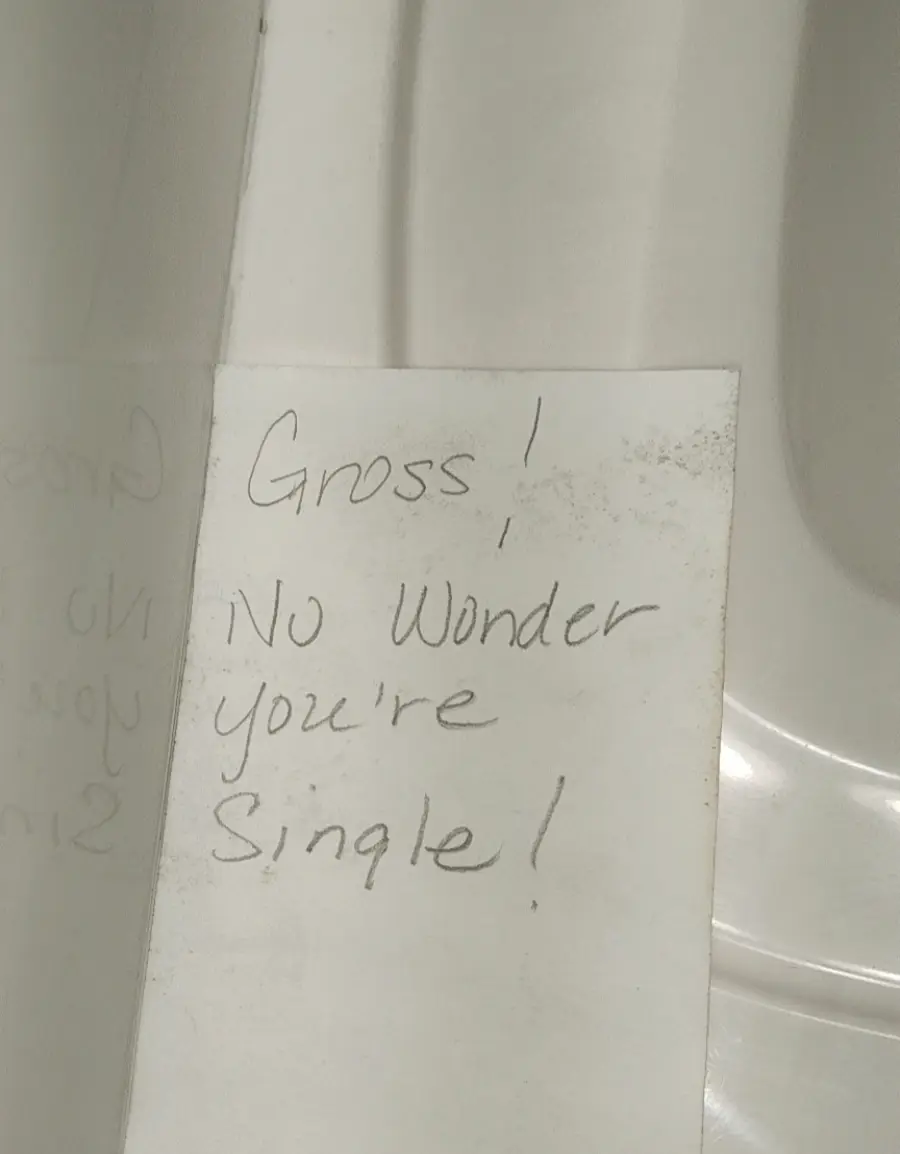 Gross!
No Wonder
you're
Single!